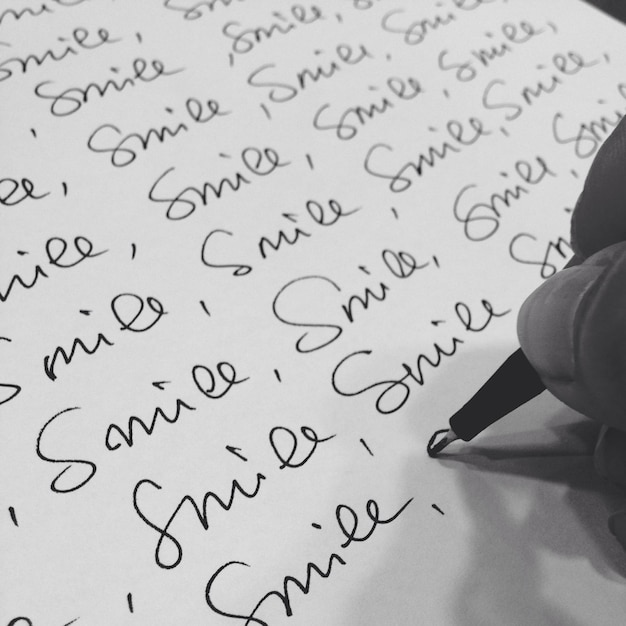 Smile,
, Smile , Smile,
, Smile , Smile, Smile
mile, Smile, Smile, Smile,
Smile, Smile, Smile, Smile,
, Smile, Smile, Smile,
Smile, Smile
, Smile,